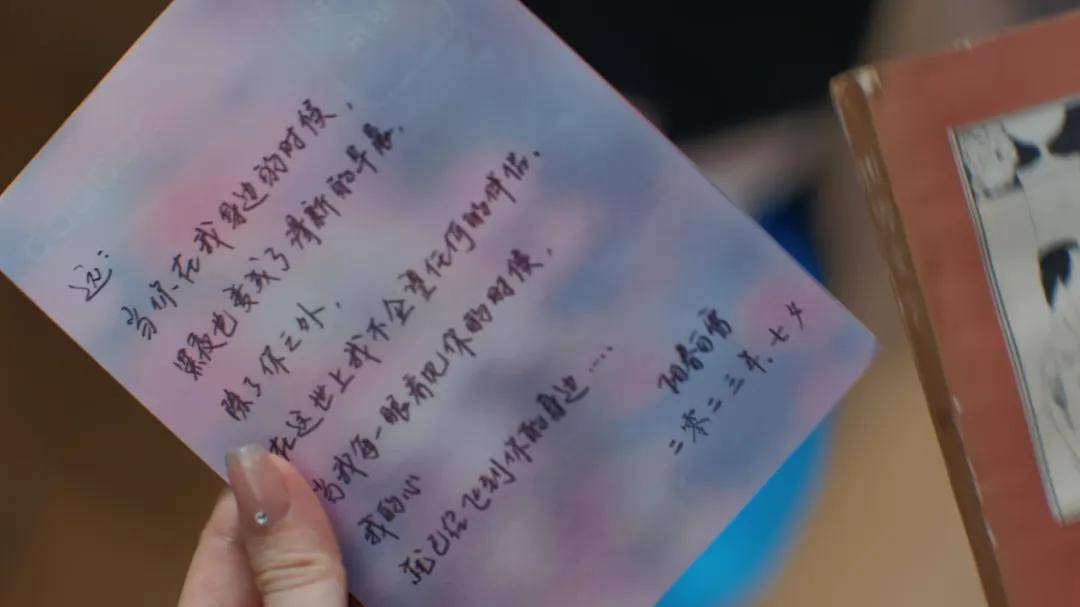 远：
当你在我身边的时候，
黑夜也变成了清新的早晨，
除了你之外，
在这世上我不企望任何的伴侣。
当我每一眼看见你的的时候，
我的心
就已经飞到你的身边……
阳春白雪
二零二三年，七夕